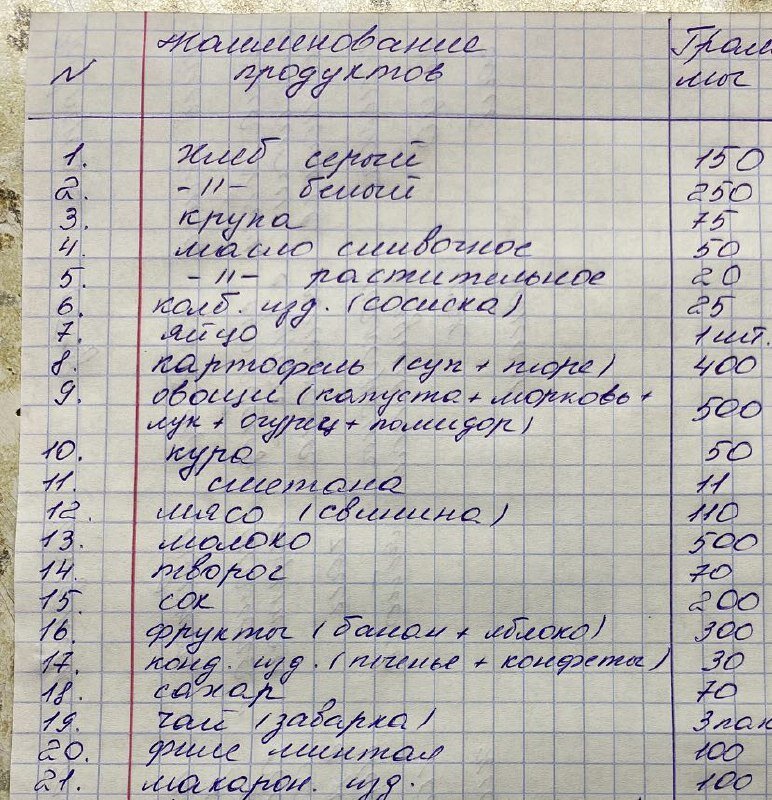 N Наименование продуктов Грам мы
1. Хлеб серый 150
2. -"- белый 250
3. крупа 75
4. масло сливочное 50
5. -"- растительное 20
6. колб. изд. (сосиска) 25
7. яйцо 1 шт.
8. картофель (суп + пюре) 400
9. овощи (капуста + морковь +
лук + огурец + помидор) 500
10. кура 50
11. сметана 11
12. мясо (свинина) 110
13. молоко 500
14. творог 70
15. сок 200
16. фрукты (банан + яблоко) 300
17. конд. изд. (печенье + конфеты) 30
18. сахар 70
19. чай (заварка) 3 пак
20. филе минтая 100
21. макарон. изд. 100